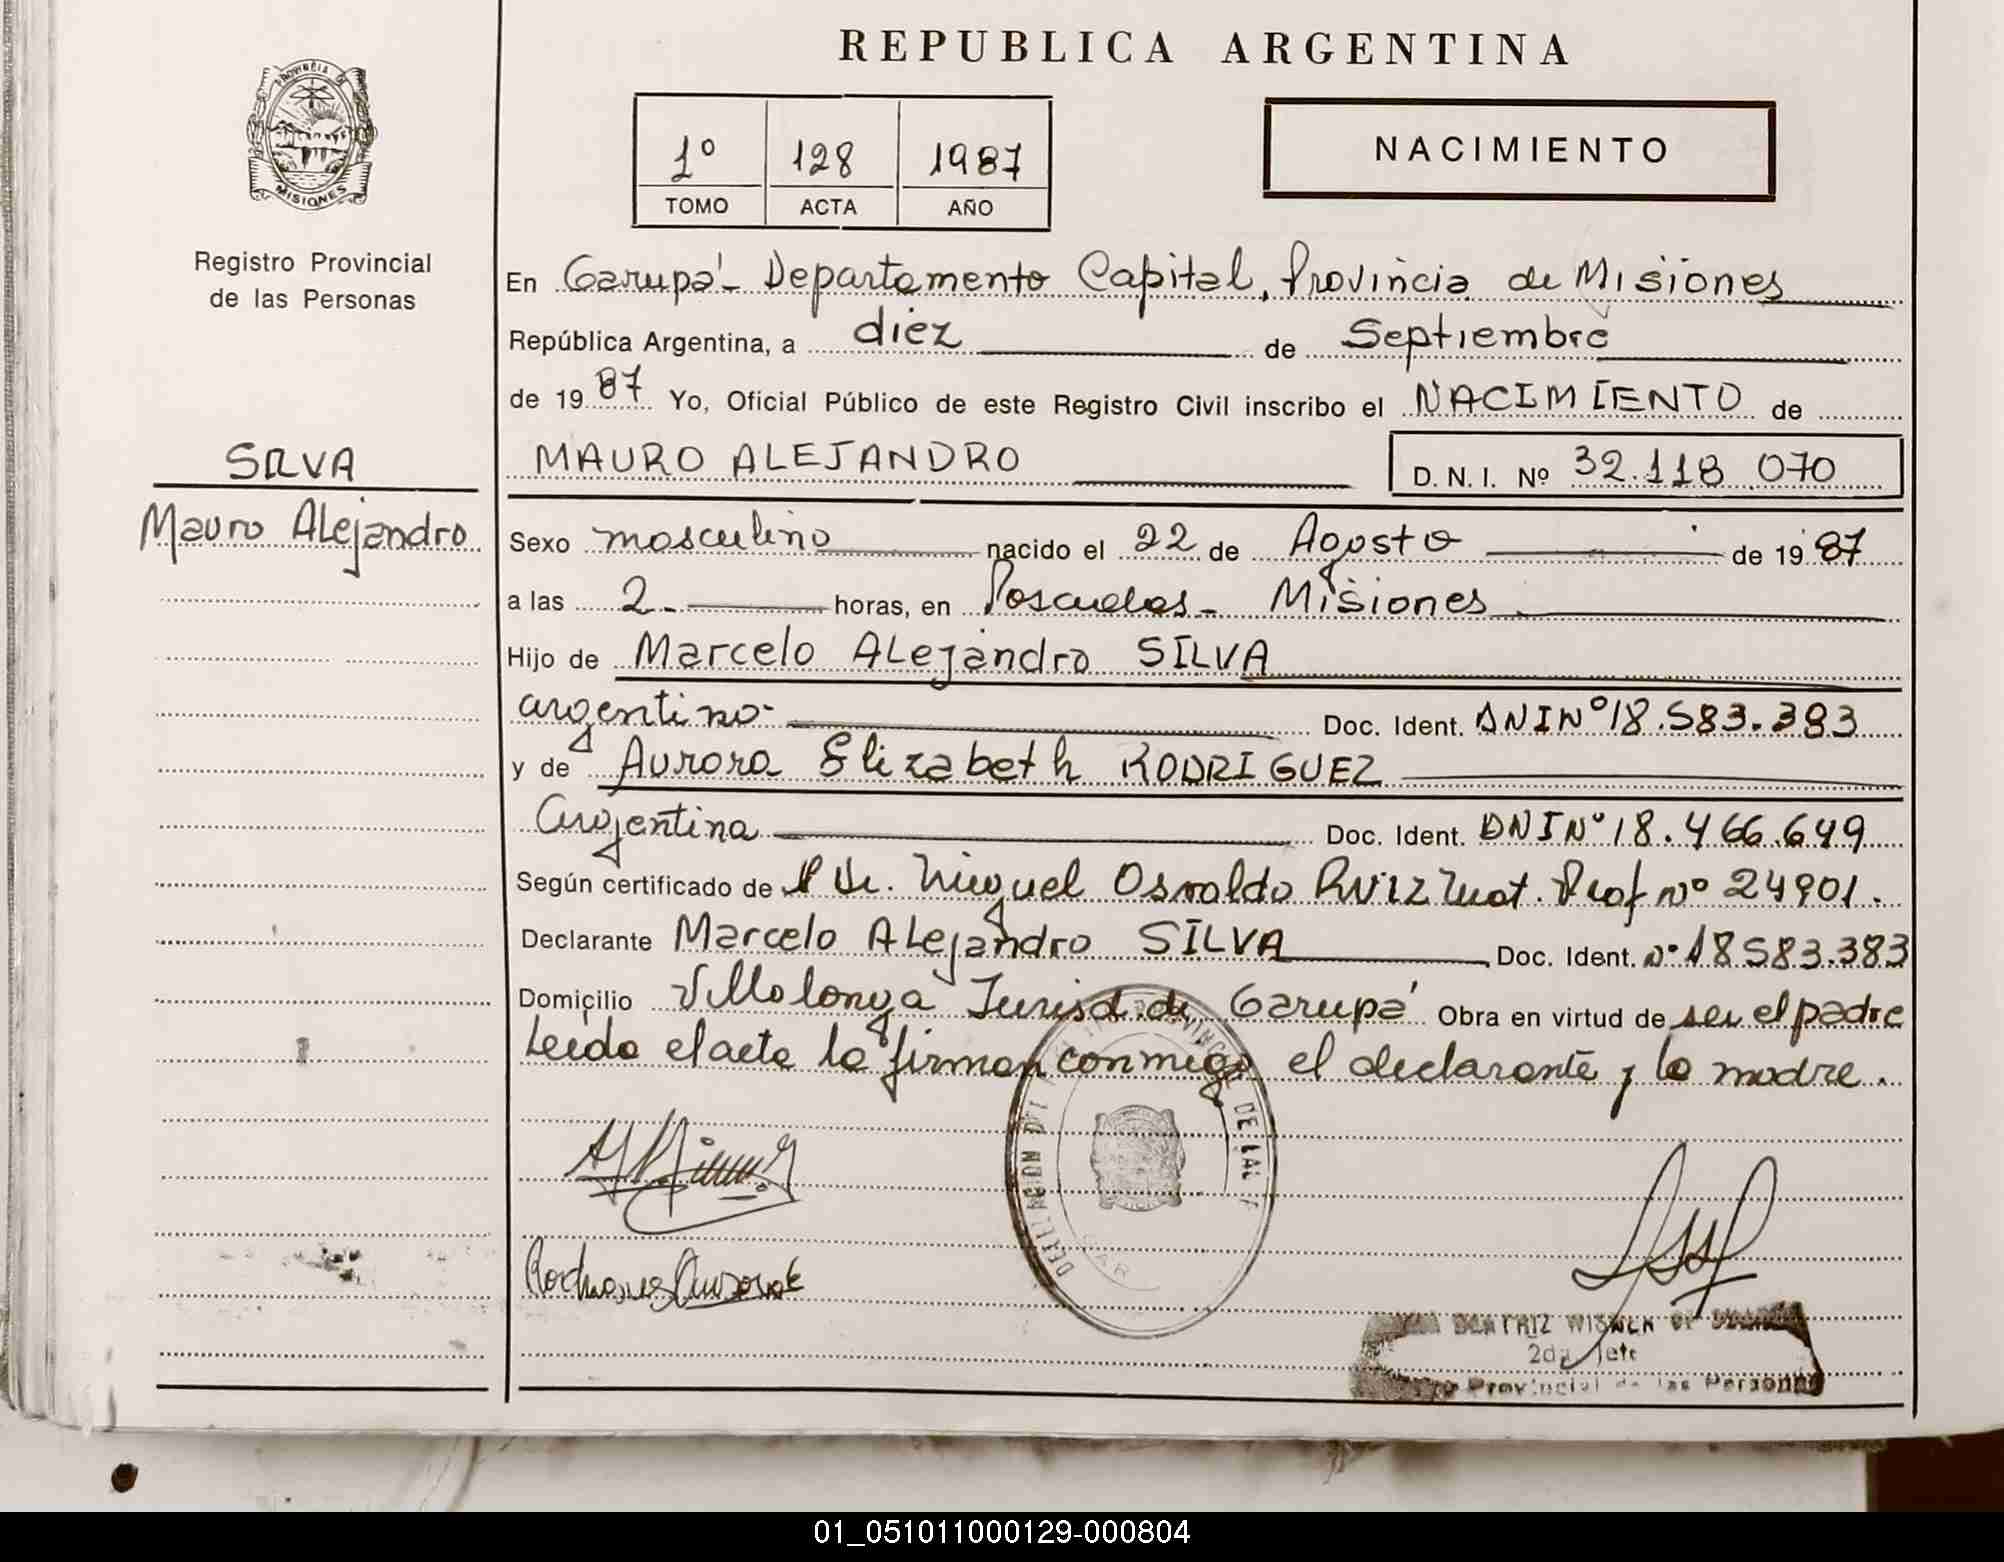 REPUBLICA ARGENTINA
PROVINCIA DE
MISIONES
Registro Provincial
de las Personas
1º 128 1987
TOMO ACTA AÑO
NACIMIENTO
En Garupá - Departamento Capital, Provincia de Misiones
República Argentina, a diez de Septiembre
de 1987 Yo, Oficial Público de este Registro Civil inscribo el NACIMIENTO de
MAURO ALEJANDRO D. N. I. Nº 32.118.070
SILVA
Mauro Alejandro
Sexo masculino nacido el 22 de Agosto de 1987
a las 2.- horas, en Posadas - Misiones.
Hijo de Marcelo Alejandro SILVA
argentino- Doc. Ident. DNI Nº 18.583.383
y de Aurora Elizabeth RODRIGUEZ
Argentina Doc. Ident. DNI Nº 18.466.649
Según certificado de Dr. Miguel Osvaldo RUIZ Mat. Prof Nº 24901.
Declarante Marcelo Alejandro SILVA Doc. Ident. Nº 18583.383
Domicilio Villalonga Jurisd. de Garupá Obra en virtud de ser el padre
Leído el acta la firman conmigo el declarante y la madre.
Rodrigues Aurora E
BEATRIZ WISNER DE
2da Jefe
Provincial de las Personas
01_051011000129-000804